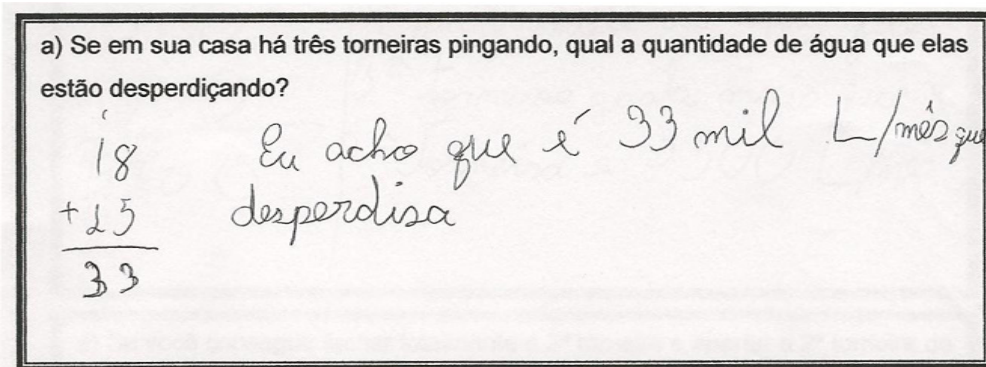 a) Se em sua casa há três torneiras pingando, qual a quantidade de água que elas
estão desperdiçando?
18 Eu acho que é 33 mil L/mês que
+15 desperdisa
33